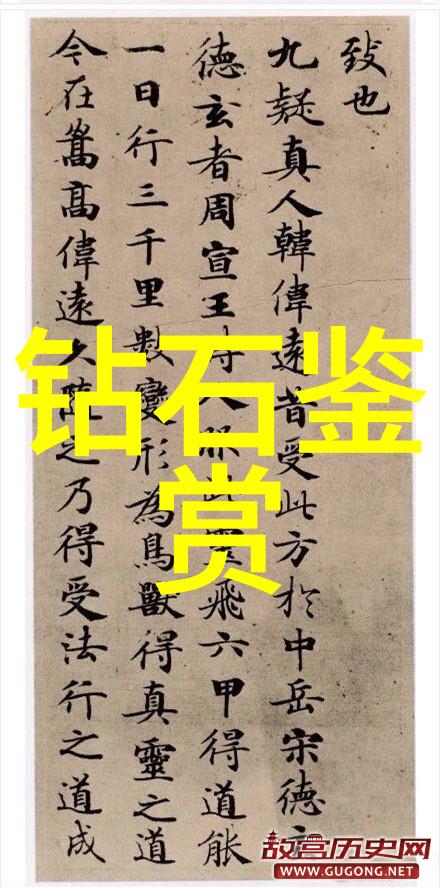 致也
九疑真人韓偉遠昔受此方於中岳宋德
德玄者周宣王時人服此靈飛六甲得道能
一日行三千里數變形為鳥獸得真靈之道
今在嵩高偉遠久隨之乃得受法行之道成
钻石鉴
赏
故宫历史网
WWW.GUGONG.NET